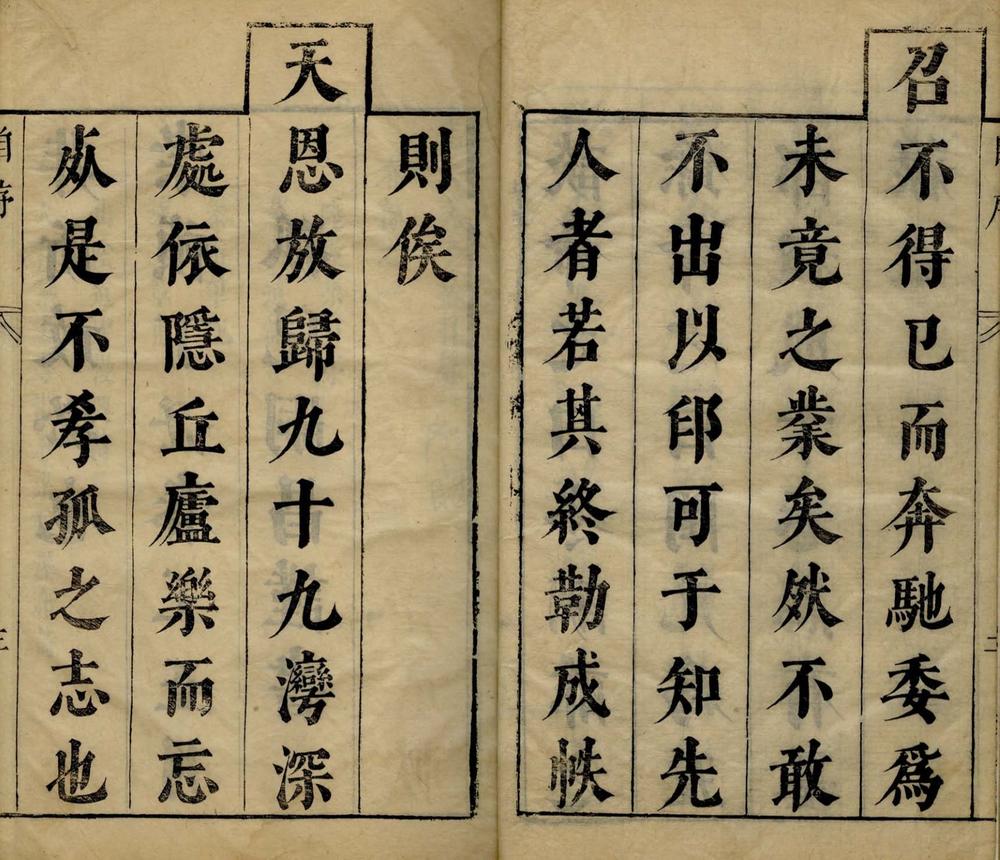 召不得已而奔馳委爲
未竟之業矣然不敢
不出以印可于知先
人者若其終勒成帙
則俟
天恩放歸九十九灣深
處依隱丘廬樂而忘
死是不孝孤之志也
自序
三